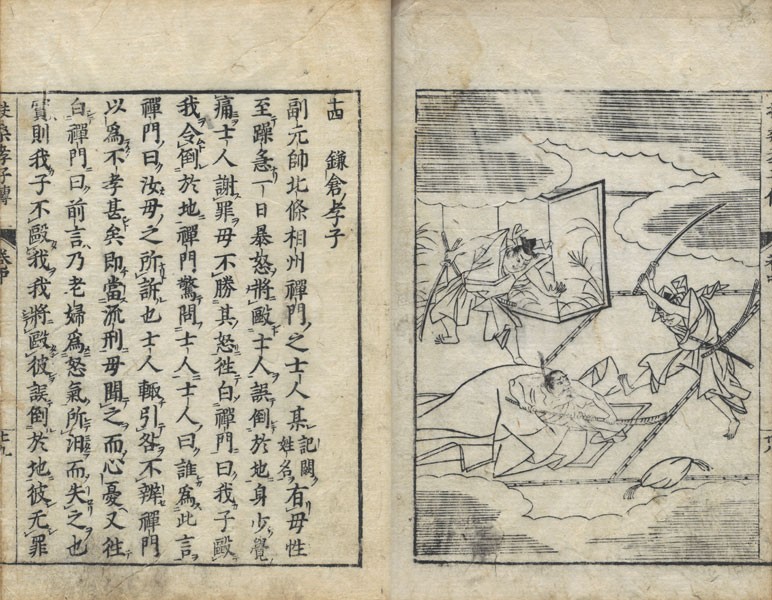 十四 鎌倉孝子
副元帥北條相州禪門之士人某記闕姓名有母性
至躁急一日暴怒將毆士人誤倒於地身少覺
痛士人謝罪母不勝其怒徃白禪門曰我子毆
我令倒於地禪門驚問士人士人曰誰爲此言
禪門曰汝母之所訴也士人輙引咎不辨禪門
以爲不孝甚矣即當流刑母聞之而心憂又徃
白禪門曰前言乃老婦爲怒氣所汨而失之也
實則我子不毆我我將毆彼誤倒於地彼无罪
桑孝子傳